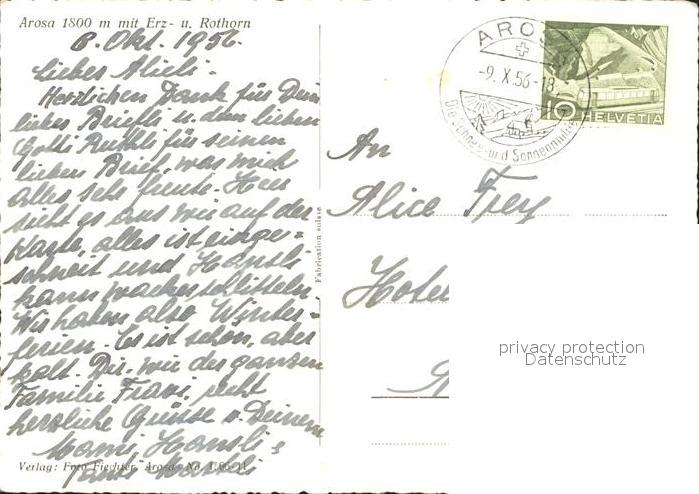 Arosa 1800 m mit Erz- u. Rothorn
8. Okt. 1956.
Liebes Alicli.
Herzlichen Dank für Dein
liebes Briefli u. dem lieben
Gotti Ruthli für seinen
lieben Brief, was mich
alles sehr freute. Hier
sieht es aus wie auf der
Karte, alles ist einge-
schneit und Hansli
kann wacker schlitteln.
Wir haben also Winter-
ferien. Es ist schön, aber
kalt. Dir, wie der ganzen
Familie Frau, recht
herzliche Grüsse v. Deinem
Mami Hansli
Verlag: Foto Fiechter, Arosa No.
Fabrication suisse
AROSA
-9. X. 56-18
Die Schnee- und Sonnen
10 HELVETIA
An
Alice Frey
Hote
privacy protection
Datenschutz